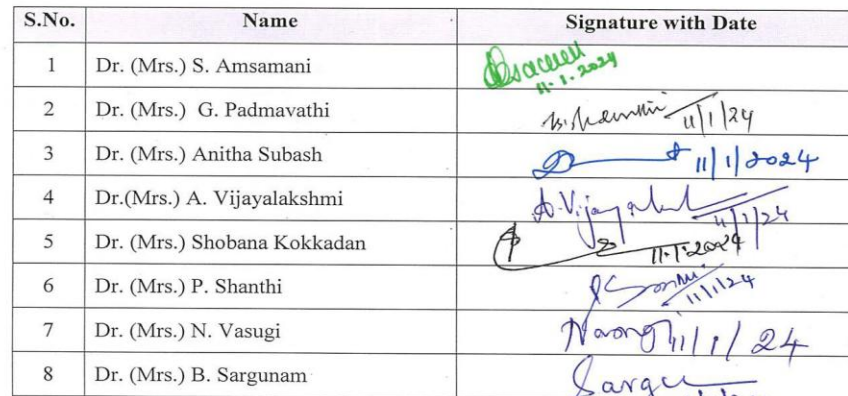 S.No. Name Signature with Date
1 Dr. (Mrs.) S. Amsamani 11.1.2024
2 Dr. (Mrs.) G. Padmavathi 11/1/24
3 Dr. (Mrs.) Anitha Subash 11/1/2024
4 Dr.(Mrs.) A. Vijayalakshmi A.Vijayalakshmi 11/1/24
5 Dr. (Mrs.) Shobana Kokkadan 11.1.2024
6 Dr. (Mrs.) P. Shanthi 11/1/24
7 Dr. (Mrs.) N. Vasugi 11/1/24
8 Dr. (Mrs.) B. Sargunam